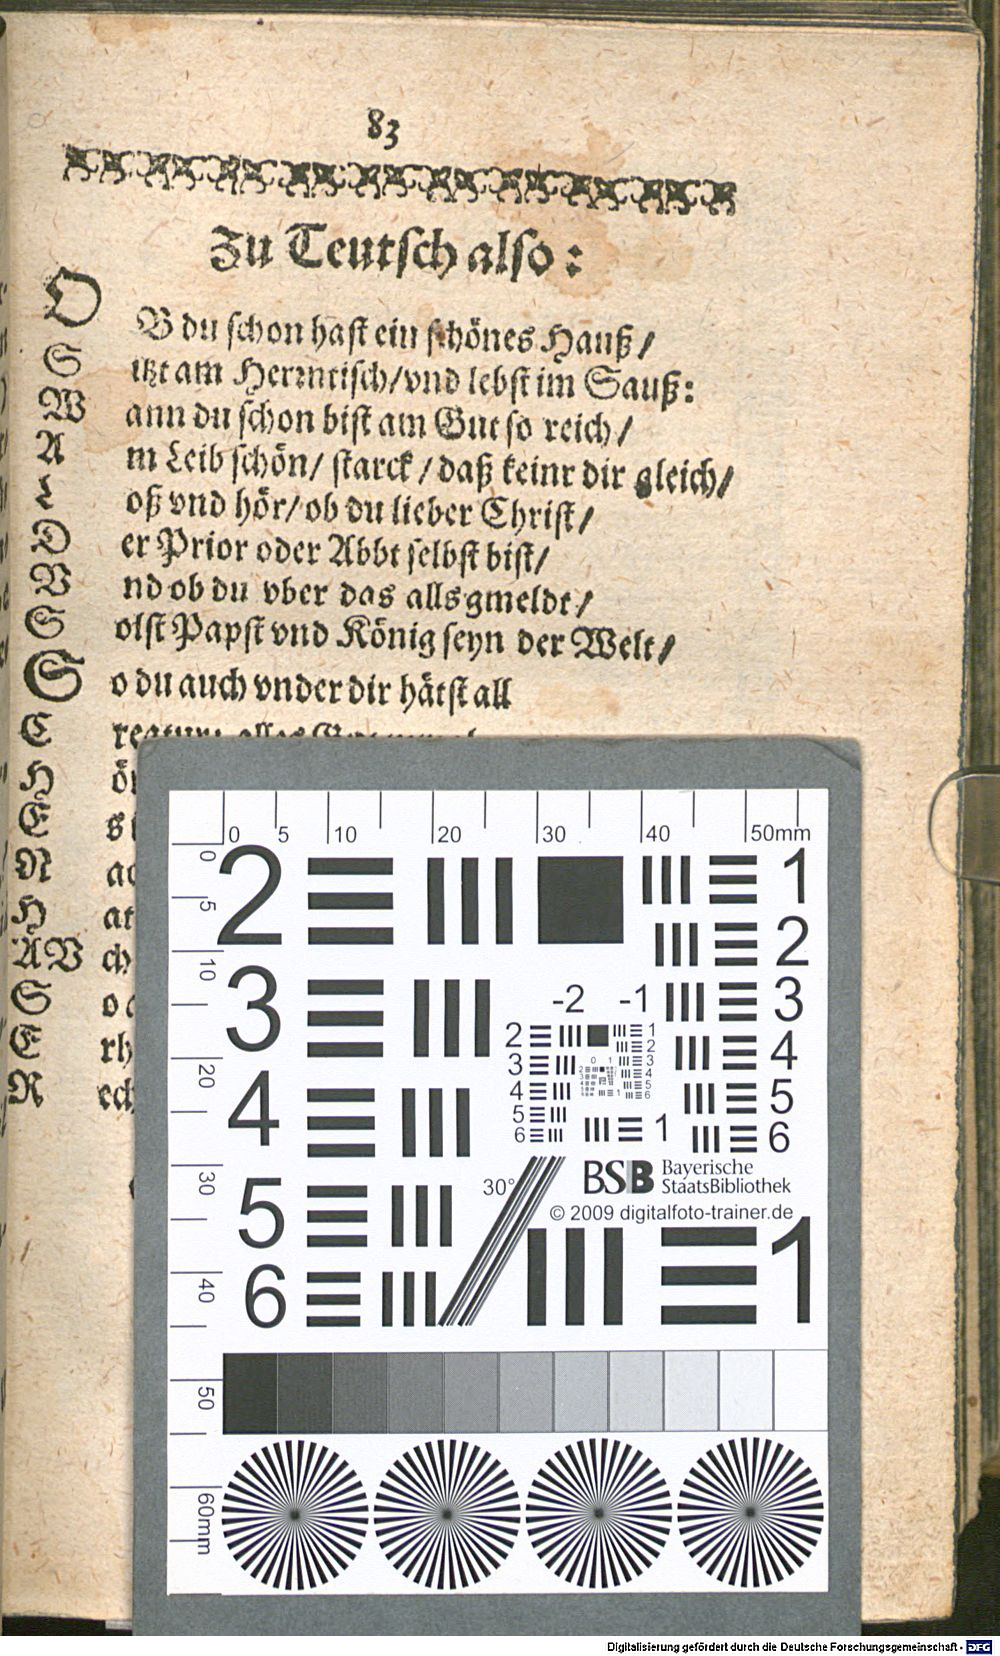 83
Zu Teutsch also:
OB du schon hast ein schönes Hauß/
Sitzt am Herrntisch/vnd lebst im Sauß:
Wann du schon bist am Gut so reich/
Am Leib schön/ starck/daß keinr dir gleich/
Loß vnd hör/ob du lieber Christ/
Der Prior oder Abbt selbst bist/
Vnd ob du vber das alls gmeldt/
Solst Papst vnd König seyn der Welt/
So du auch vnder dir hätst all
C
H
E
N
H
ÄV
S
E
R
0 5 10 20 30 40 50mm
0 5 10 20 30 40 50 60mm
2 1
2
3 -2 -1 3
2 1
2
3 0 1 3
4 4 4
4 5
5 6 5
6 1 6
30° BSB Bayerische
StaatsBibliothek
5 © 2009 digitalfoto-trainer.de
6 1
Digitalisierung gefördert durch die Deutsche Forschungsgemeinschaft - DFG